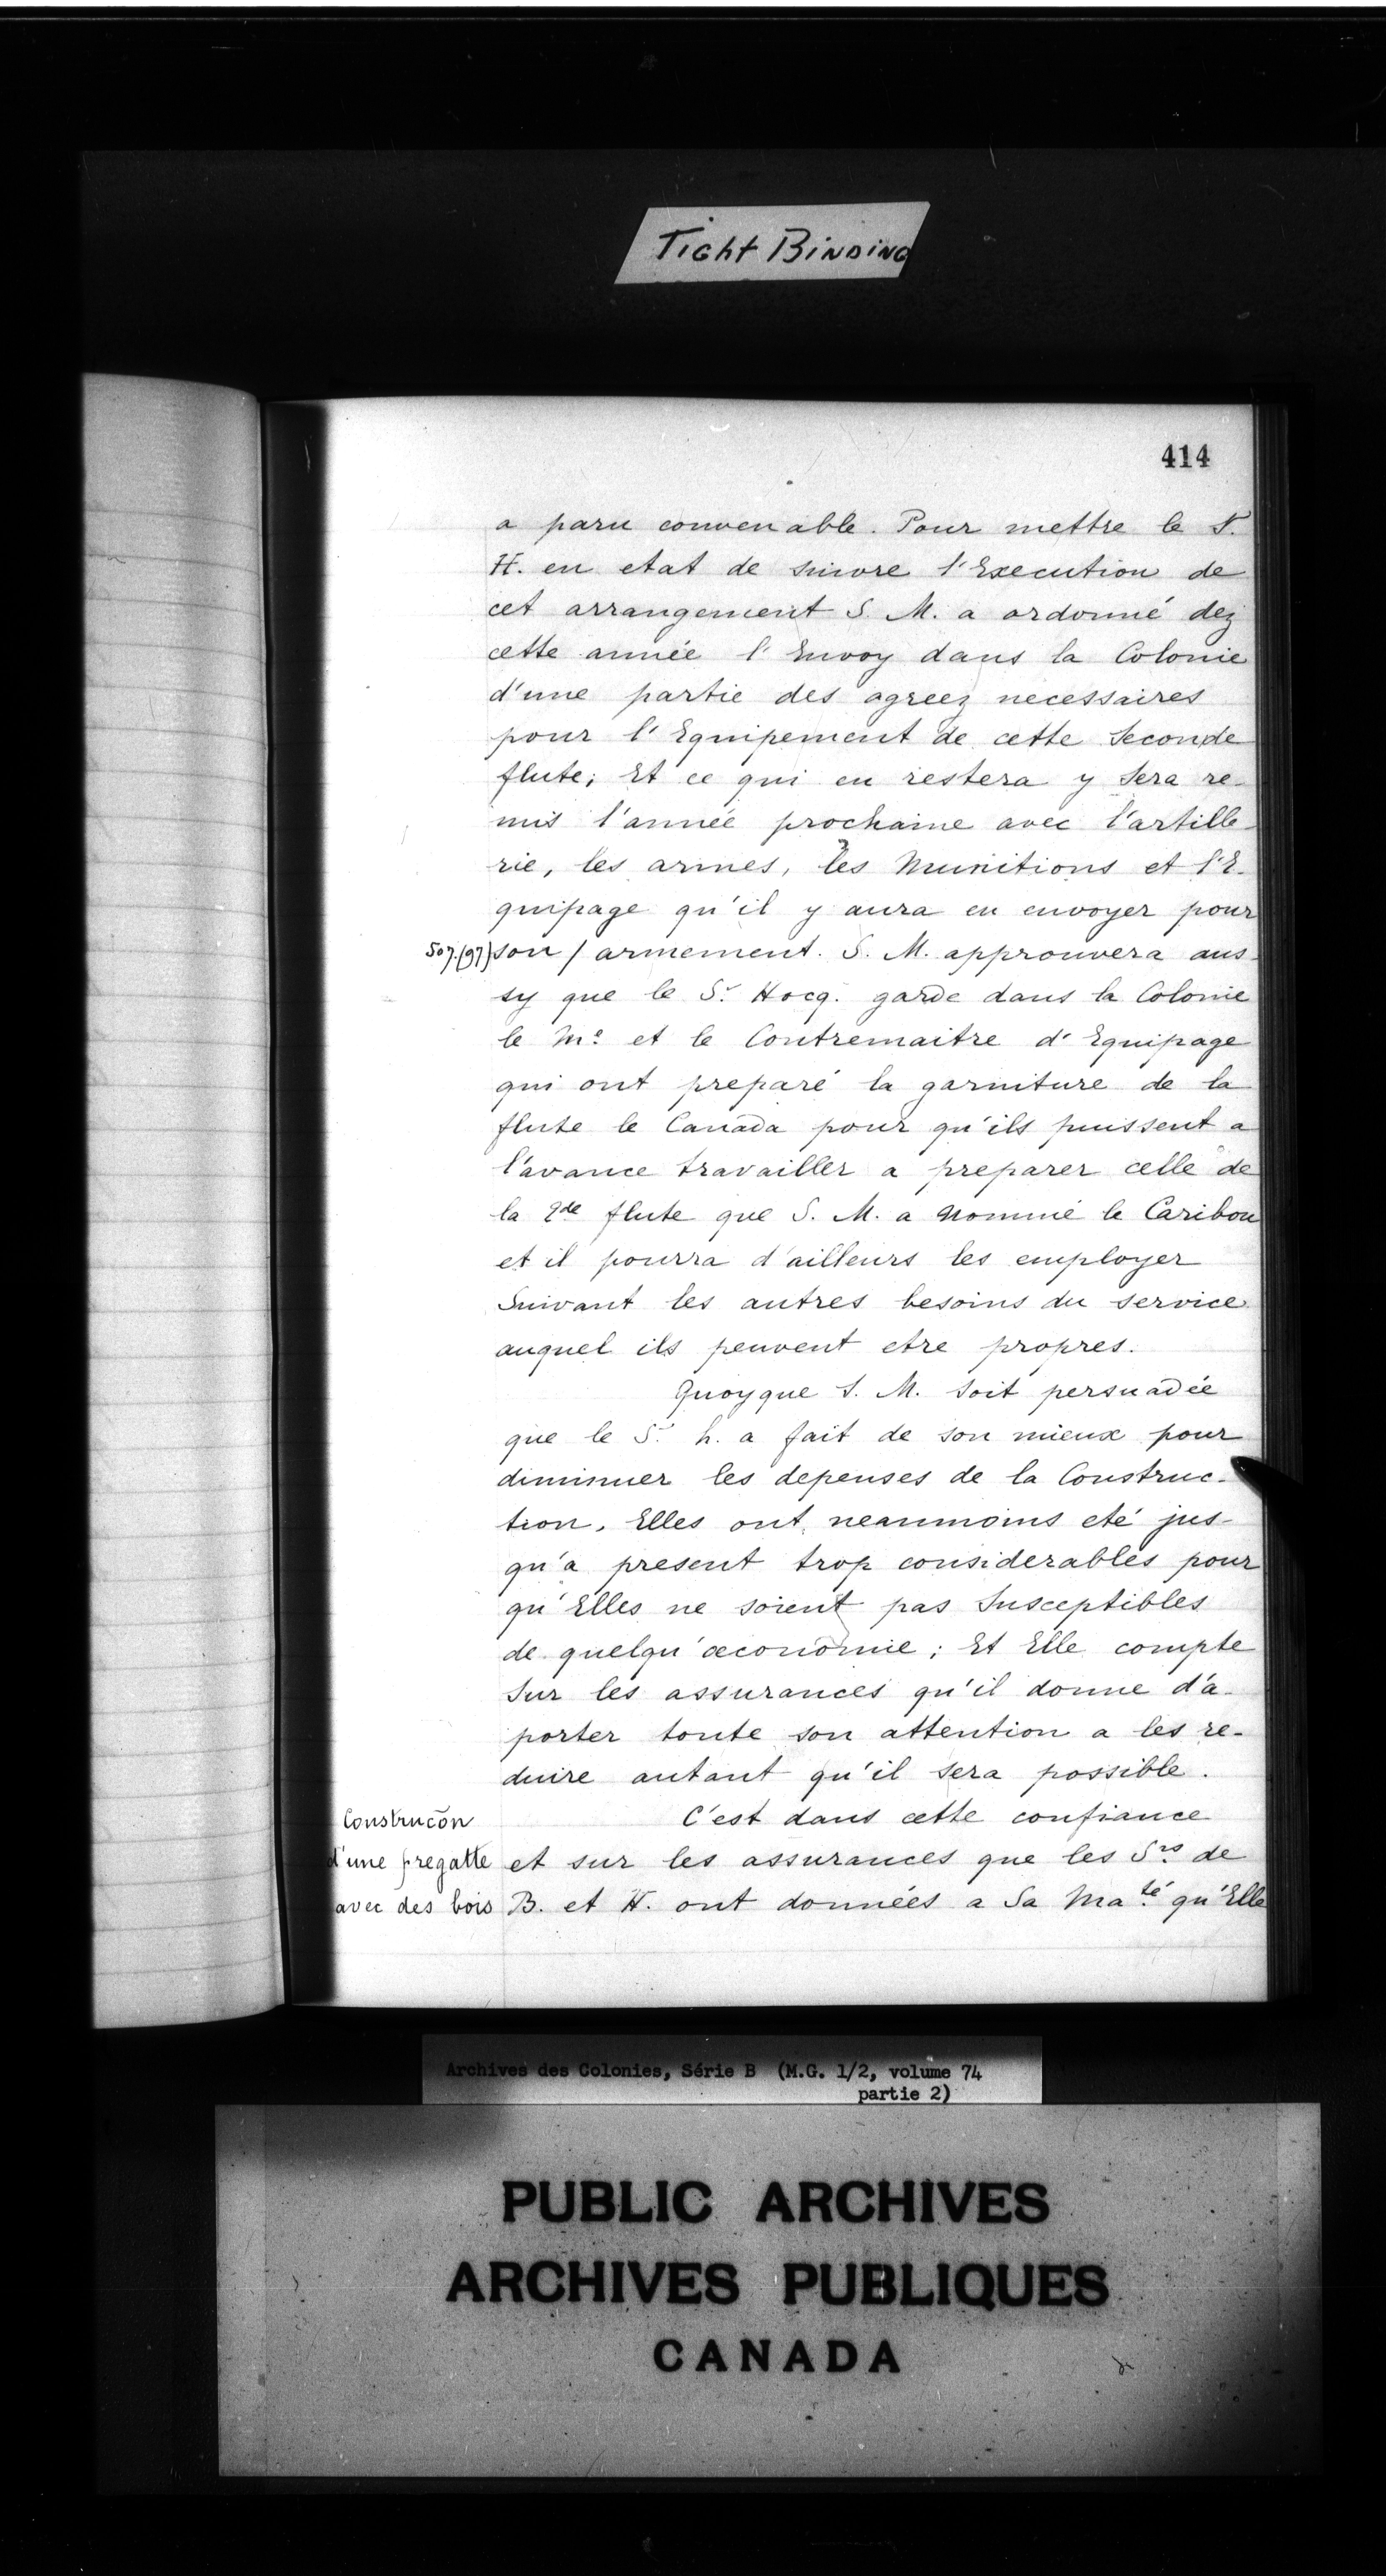 Tight Binding
414
a paru convenable. Pour mettre le S.
H. en etat de suivre l'Execution de
cet arrangement S. M. a ordonné dez
cette année l'Envoy dans la Colonie
d'une partie des agreez necessaires
pour l'Equipement de cette Seconde
flute; Et ce qui en restera y Sera re-
mis l'année prochaine avec l'artille-
rie, les armes, les Munitions et l'E-
quipage qu'il y aura en envoyer pour
507.(97) son / armement. S. M. approuvera aus-
sy que le Sr. Hocq. garde dans la Colonie
le Me. et le Contremaitre d'Equipage
qui ont preparé la garniture de la
flute le Canada pour qu'ils puissent a
l'avance travailler a preparer celle de
la 2de flute que S. M. a Nommé le Caribou
et il pourra d'ailleurs les employer
Suivant les autres besoins du service
auquel ils peuvent etre propres.
Quoyque S. M. Soit persuadée
que le Sr. h. a fait de son mieux pour
diminuer les depenses de la Construc-
tion, Elles ont neanmoins eté jus-
qu'a present trop considerables pour
qu'Elles ne soient pas Susceptibles
de quelqu'œconomie; Et Elle compte
Sur les assurances qu'il donne d'a-
porter toute son attention a les re-
duire autant qu'il sera possible.
C'est dans cette confiance
Construcõn
d'une fregatte
avec des bois
et sur les assurances que les Srs. de
B. et H. ont données a Sa Maté. qu'Elle
Archives des Colonies, Série B (M.G. 1/2, volume 74
partie 2)
PUBLIC ARCHIVES
ARCHIVES PUBLIQUES
CANADA